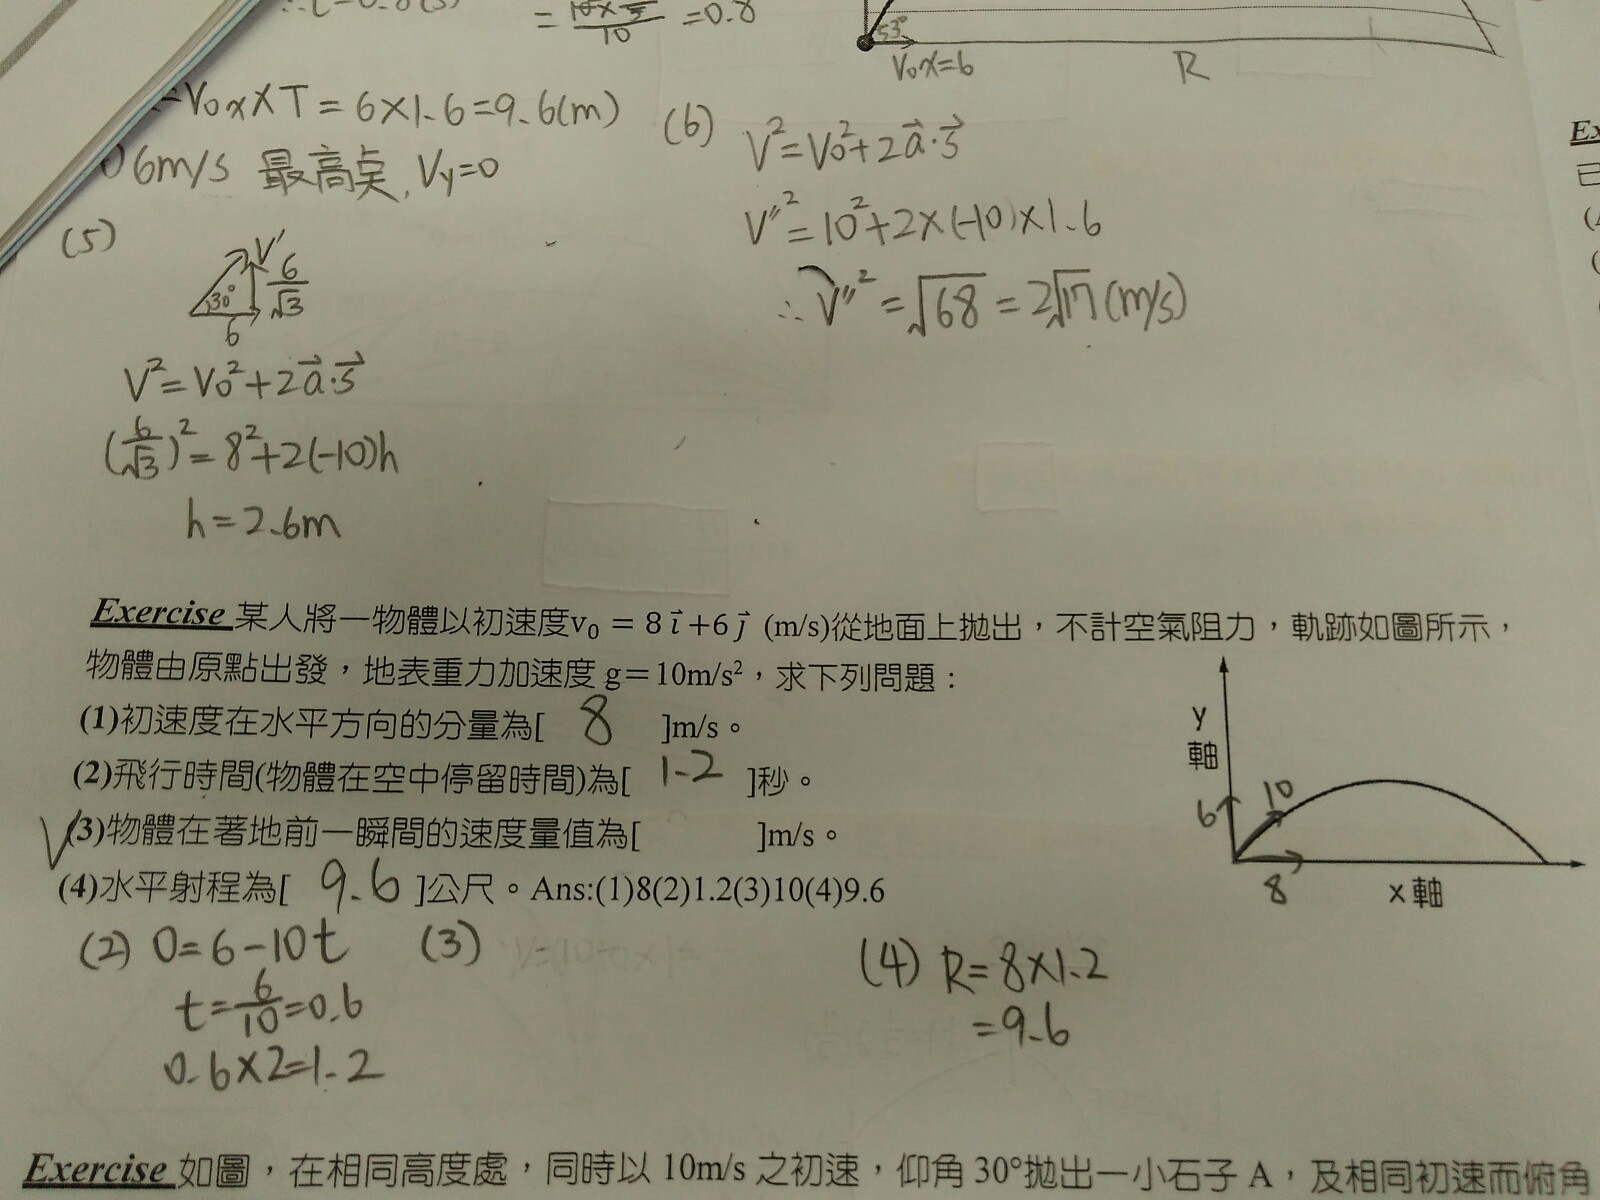 = 10×
10 =0.8
53°
V₀x=6
R
=V₀x×T=6×1.6=9.6(m)
6m/s 最高點, Vy=0
(5)
V'
30°
6/√3
6
V²=V₀²+2a⃗·s⃗
(6/√3)²=8²+2(-10)h
h=2.6m
(6)
V²=V₀²+2a⃗·s⃗
V''²=10²+2×(-10)×1.6
∴V''²=√68=2√17(m/s)
Ex
已
Exercise 某人將一物體以初速度v₀ = 8 i⃗ +6 j⃗ (m/s)從地面上拋出，不計空氣阻力，軌跡如圖所示，
物體由原點出發，地表重力加速度 g＝10m/s²，求下列問題：
(1)初速度在水平方向的分量為[ 8 ]m/s。
(2)飛行時間(物體在空中停留時間)為[ 1.2 ]秒。
(3)物體在著地前一瞬間的速度量值為[ ]m/s。
(4)水平射程為[ 9.6 ]公尺。Ans:(1)8(2)1.2(3)10(4)9.6
y
軸
6
10
8
x 軸
(2) 0=6-10t
t=6/10=0.6
0.6×2=1.2
(3)
(4) R=8×1.2
=9.6
Exercise 如圖，在相同高度處，同時以 10m/s 之初速，仰角 30°拋出一小石子 A，及相同初速而俯角